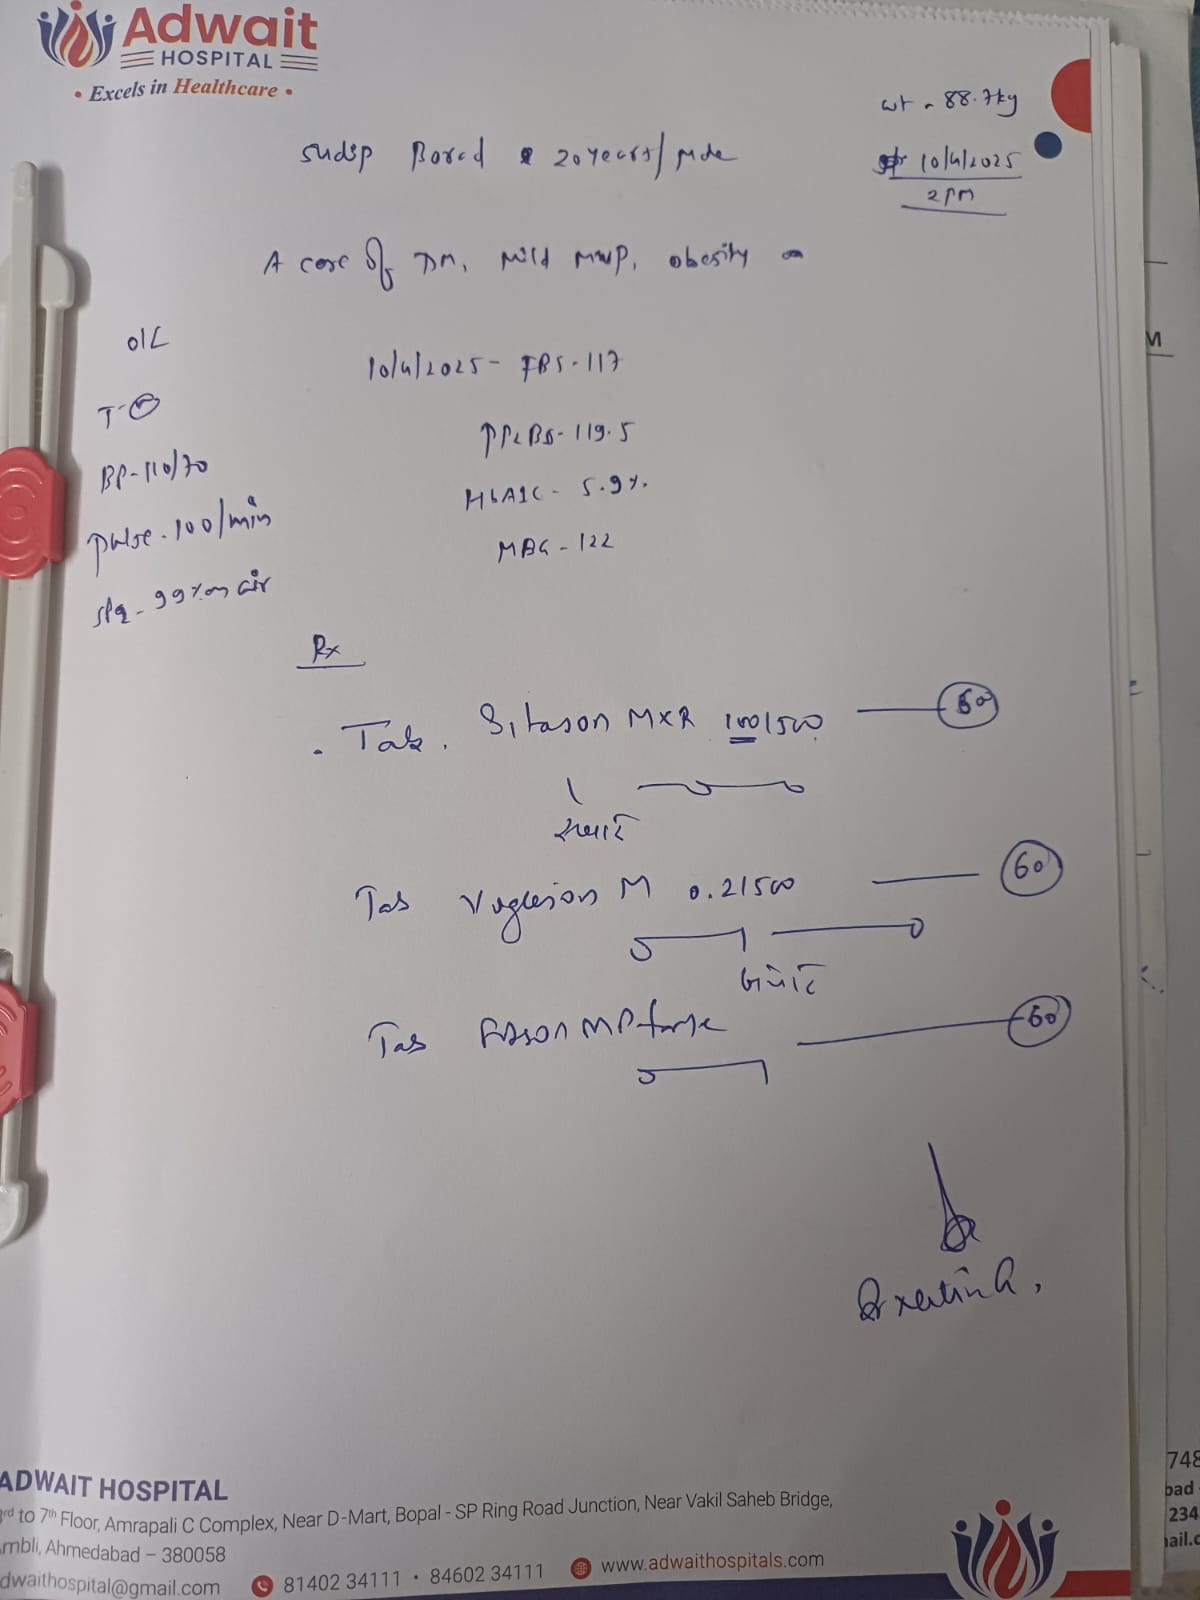 Adwait
HOSPITAL
• Excels in Healthcare •
wt - 88.7kg
10/4/2025
2 PM
20 years/
A case of DM, Mild MWP, obesity
O/E
T-N
BP-110/70
pulse-100/min
SPO2-99% on air
10/4/2025 - FBS-117
PP2BS-119.5
HbA1C - 5.9%
MBG - 122
Rx
Tab. Sitason MXR 100/500 60
1
સવારે
Tab Voglison M 0.2/500 60
બપોરે
Tab MP forte 60
ADWAIT HOSPITAL
3rd to 7th Floor, Amrapali C Complex, Near D-Mart, Bopal - SP Ring Road Junction, Near Vakil Saheb Bridge,
Ambli, Ahmedabad – 380058
adwaithospital@gmail.com 81402 34111 • 84602 34111 www.adwaithospitals.com
M
748
bad
234
ail.c